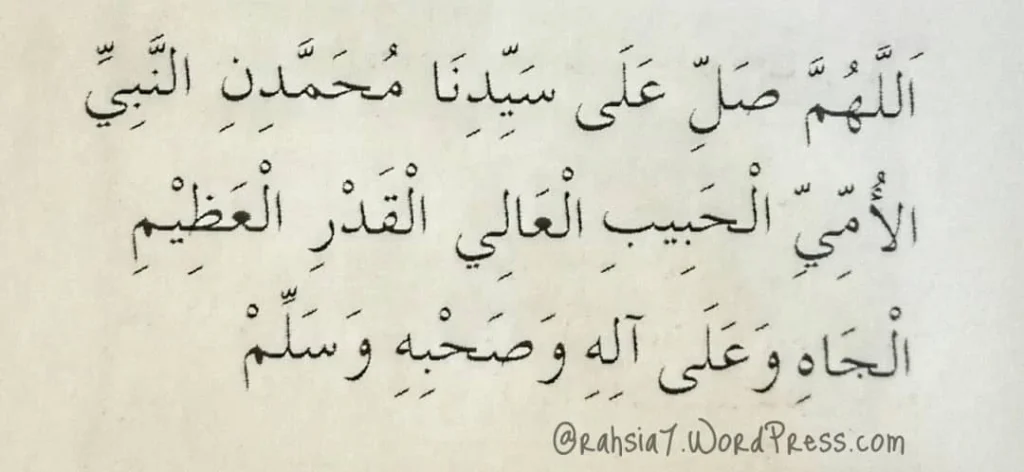 اَللَّهُمَّ صَلِّ عَلَى سَيِّدِنَا مُحَمَّدِنِ النَّبِيِّ
الأُمِّيِّ الْحَبِيبِ الْعَالِي الْقَدْرِ الْعَظِيْمِ
الْجَاهِ وَعَلَى آلِهِ وَصَحْبِهِ وَسَلِّمْ
@rahsia7.WordPress.com